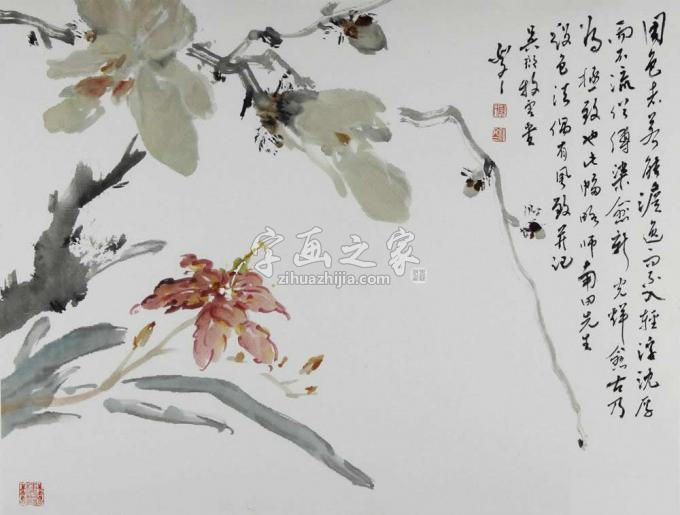 色者若能澹逸而不入輕浮沈厚
而不流俗傅染愈新光輝愈古乃
為極致也此幅略師南田先生
設色法偶有風致并記
牧雲堂
字画之家
zihuazhijia.com